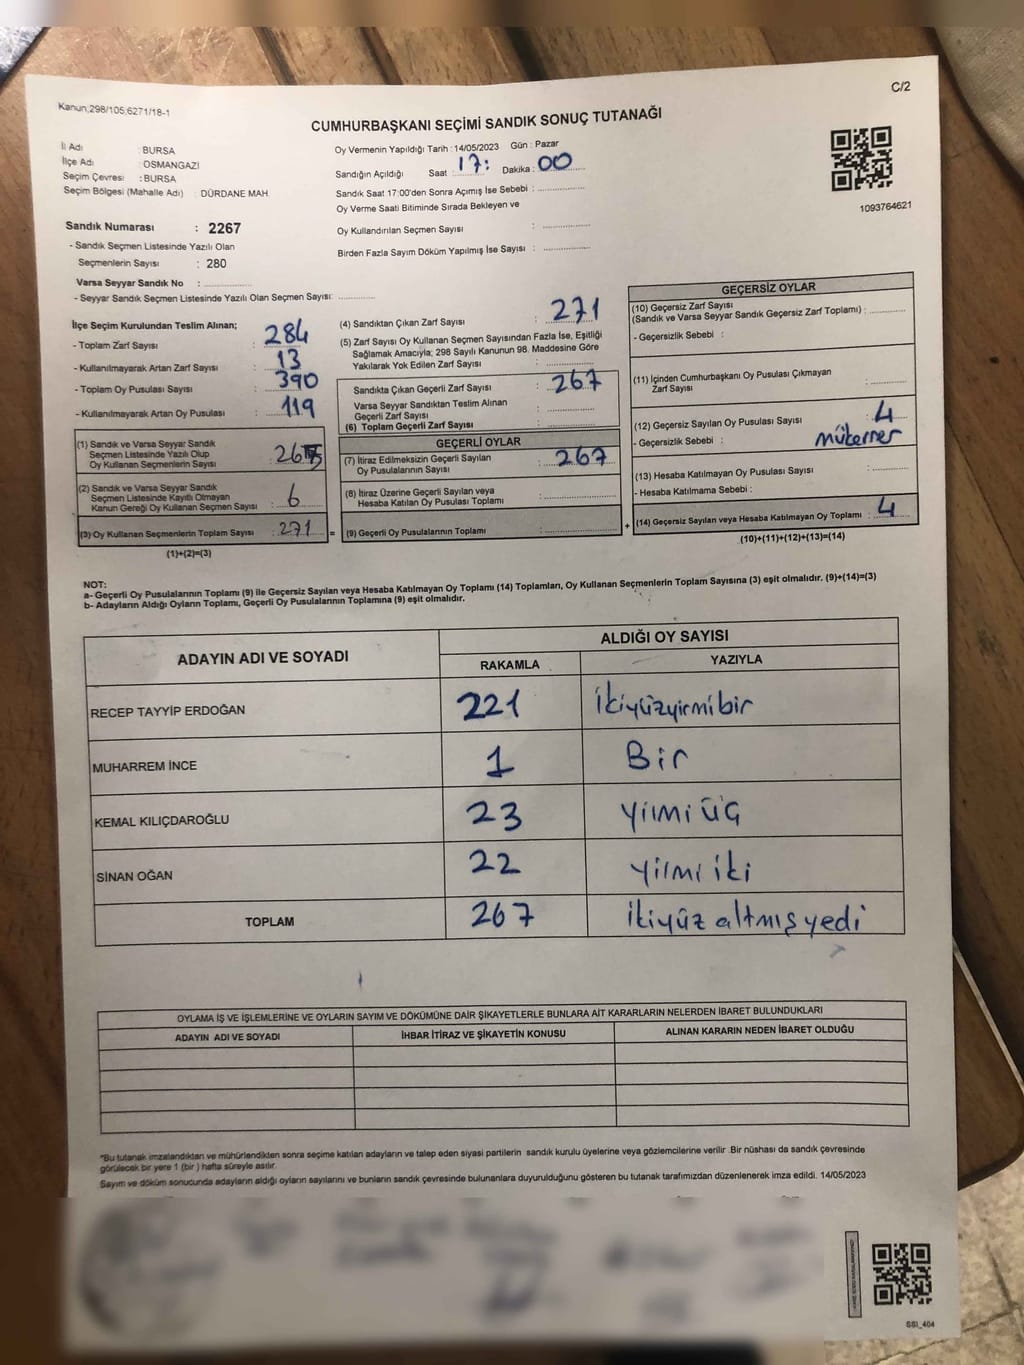 C/2
Kanun;298/105;6271/18-1
CUMHURBAŞKANI SEÇİMİ SANDIK SONUÇ TUTANAĞI
İl Adı : BURSA
İlçe Adı : OSMANGAZİ
Seçim Çevresi : BURSA
Seçim Bölgesi (Mahalle Adı) : DÜRDANE MAH.
Sandık Numarası : 2267
- Sandık Seçmen Listesinde Yazılı Olan
Seçmenlerin Sayısı : 280
Varsa Seyyar Sandık No :
- Seyyar Sandık Seçmen Listesinde Yazılı Olan Seçmen Sayısı:
Oy Vermenin Yapıldığı Tarih : 14/05/2023 Gün : Pazar
Sandığın Açıldığı Saat : 17: Dakika : 00
Sandık Saat 17:00'den Sonra Açımış İse Sebebi :
Oy Verme Saati Bitiminde Sırada Bekleyen ve
Oy Kullandırılan Seçmen Sayısı :
Birden Fazla Sayım Döküm Yapılmış İse Sayısı :
1093764621
İlçe Seçim Kurulundan Teslim Alınan;
- Toplam Zarf Sayısı : 284
- Kullanılmayarak Artan Zarf Sayısı : 13
- Toplam Oy Pusulası Sayısı : 390
- Kullanılmayarak Artan Oy Pusulası : 119
(1) Sandık ve Varsa Seyyar Sandık
Seçmen Listesinde Yazılı Olup
Oy Kullanan Seçmenlerin Sayısı : 265
(2) Sandık ve Varsa Seyyar Sandık
Seçmen Listesinde Kayıtlı Olmayan
Kanun Gereği Oy Kullanan Seçmen Sayısı : 6
(3) Oy Kullanan Seçmenlerin Toplam Sayısı : 271 =
(1)+(2)=(3)
(4) Sandıktan Çıkan Zarf Sayısı : 271
(5) Zarf Sayısı Oy Kullanan Seçmen Sayısından Fazla İse, Eşitliği
Sağlamak Amacıyla; 298 Sayılı Kanunun 98. Maddesine Göre
Yakılarak Yok Edilen Zarf Sayısı :
Sandıkta Çıkan Geçerli Zarf Sayısı : 267
Varsa Seyyar Sandıktan Teslim Alınan
Geçerli Zarf Sayısı :
(6) Toplam Geçerli Zarf Sayısı :
GEÇERLİ OYLAR
(7) İtiraz Edilmeksizin Geçerli Sayılan
Oy Pusulalarının Sayısı : 267
(8) İtiraz Üzerine Geçerli Sayılan veya
Hesaba Katılan Oy Pusulası Toplamı :
(9) Geçerli Oy Pusulalarının Toplamı : +
GEÇERSİZ OYLAR
(10) Geçersiz Zarf Sayısı
(Sandık ve Varsa Seyyar Sandık Geçersiz Zarf Toplamı) :
- Geçersizlik Sebebi :
(11) İçinden Cumhurbaşkanı Oy Pusulası Çıkmayan
Zarf Sayısı :
(12) Geçersiz Sayılan Oy Pusulası Sayısı : 4
- Geçersizlik Sebebi : mükerrer
(13) Hesaba Katılmayan Oy Pusulası Sayısı :
- Hesaba Katılmama Sebebi :
(14) Geçersiz Sayılan veya Hesaba Katılmayan Oy Toplamı : 4
(10)+(11)+(12)+(13)=(14)
NOT:
a- Geçerli Oy Pusulalarının Toplamı (9) ile Geçersiz Sayılan veya Hesaba Katılmayan Oy Toplamı (14) Toplamları, Oy Kullanan Seçmenlerin Toplam Sayısına (3) eşit olmalıdır. (9)+(14)=(3)
b- Adayların Aldığı Oyların Toplamı, Geçerli Oy Pusulalarının Toplamına (9) eşit olmalıdır.
ADAYIN ADI VE SOYADI ALDIĞI OY SAYISI
RAKAMLA YAZIYLA
RECEP TAYYİP ERDOĞAN 221 ikiyüzyirmibir
MUHARREM İNCE 1 Bir
KEMAL KILIÇDAROĞLU 23 yirmi üç
SİNAN OĞAN 22 yirmi iki
TOPLAM 267 ikiyüz altmış yedi
OYLAMA İŞ VE İŞLEMLERİNE VE OYLARIN SAYIM VE DÖKÜMÜNE DAİR ŞİKAYETLERLE BUNLARA AİT KARARLARIN NELERDEN İBARET BULUNDUKLARI
ADAYIN ADI VE SOYADI İHBAR İTİRAZ VE ŞİKAYETİN KONUSU ALINAN KARARIN NEDEN İBARET OLDUĞU
*Bu tutanak imzalandıktan ve mühürlendikten sonra seçime katılan adayların ve talep eden siyasi partilerin sandık kurulu üyelerine veya gözlemcilerine verilir. Bir nüshası da sandık çevresinde
görülecek bir yere 1 (bir ) hafta süreyle asılır.
Sayım ve döküm sonucunda adayların aldığı oyların sayılarını ve bunların sandık çevresinde bulunanlara duyurulduğunu gösteren bu tutanak tarafımızdan düzenlenerek imza edildi. 14/05/2023
SSI_404